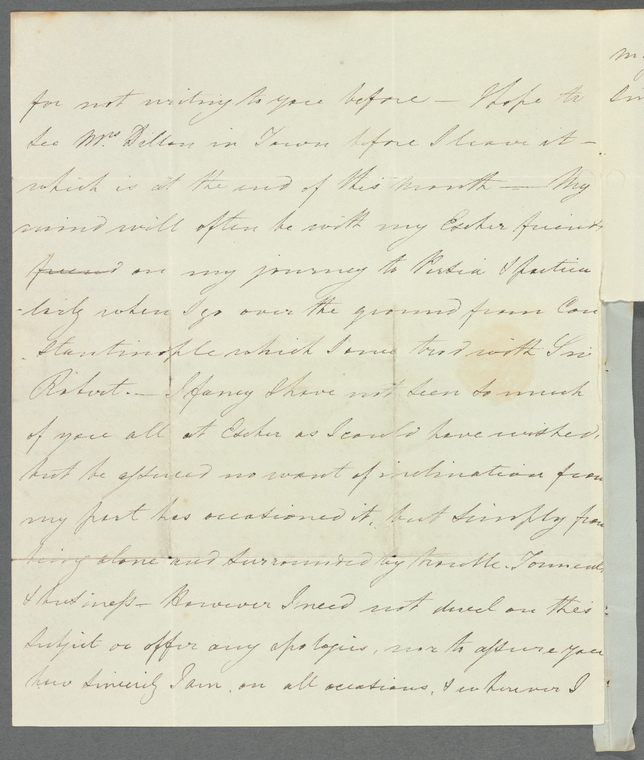 for not writing to you before — I hope to
see Mrs Dillon in Town before I leave it —
which is at the end of this month — My
mind will often be with my Esher friends
friend on my journey to Persia & particu
larly when I go over the ground from Con
stantinople which I once trod with Sir
Robert. — I fancy I have not seen so much
of you all at Esher as I could have wished,
but be assured no want of inclination from
my part has occasioned it, but simply from
being alone and surrounded by trouble,
& business — However I need not dwell on this
subject or offer any apologies, nor to assure you
how sincerely I am, on all occasions, & wherever I